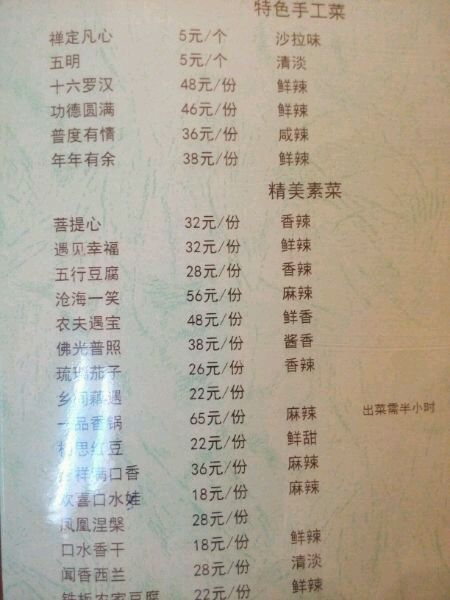 特色手工菜
禅定凡心 5元/个 沙拉味
五明 5元/个 清淡
十六罗汉 48元/份 鲜辣
功德圆满 46元/份 鲜辣
普度有情 36元/份 咸辣
年年有余 38元/份 鲜辣
精美素菜
菩提心 32元/份 香辣
遇见幸福 32元/份 鲜辣
五行豆腐 28元/份 香辣
沧海一笑 56元/份 麻辣
农夫遇宝 48元/份 鲜香
佛光普照 38元/份 酱香
琉璃茄子 26元/份 香辣
乡间藕遇 22元/份
一品香锅 65元/份 麻辣 出菜需半小时
思红豆 22元/份 鲜甜
祥满口香 36元/份 麻辣
欢喜口水娃 18元/份 麻辣
凤凰涅槃 28元/份
口水香干 18元/份 鲜辣
闻香西兰 28元/份 清淡
铁板农家豆腐 22元/份 鲜辣